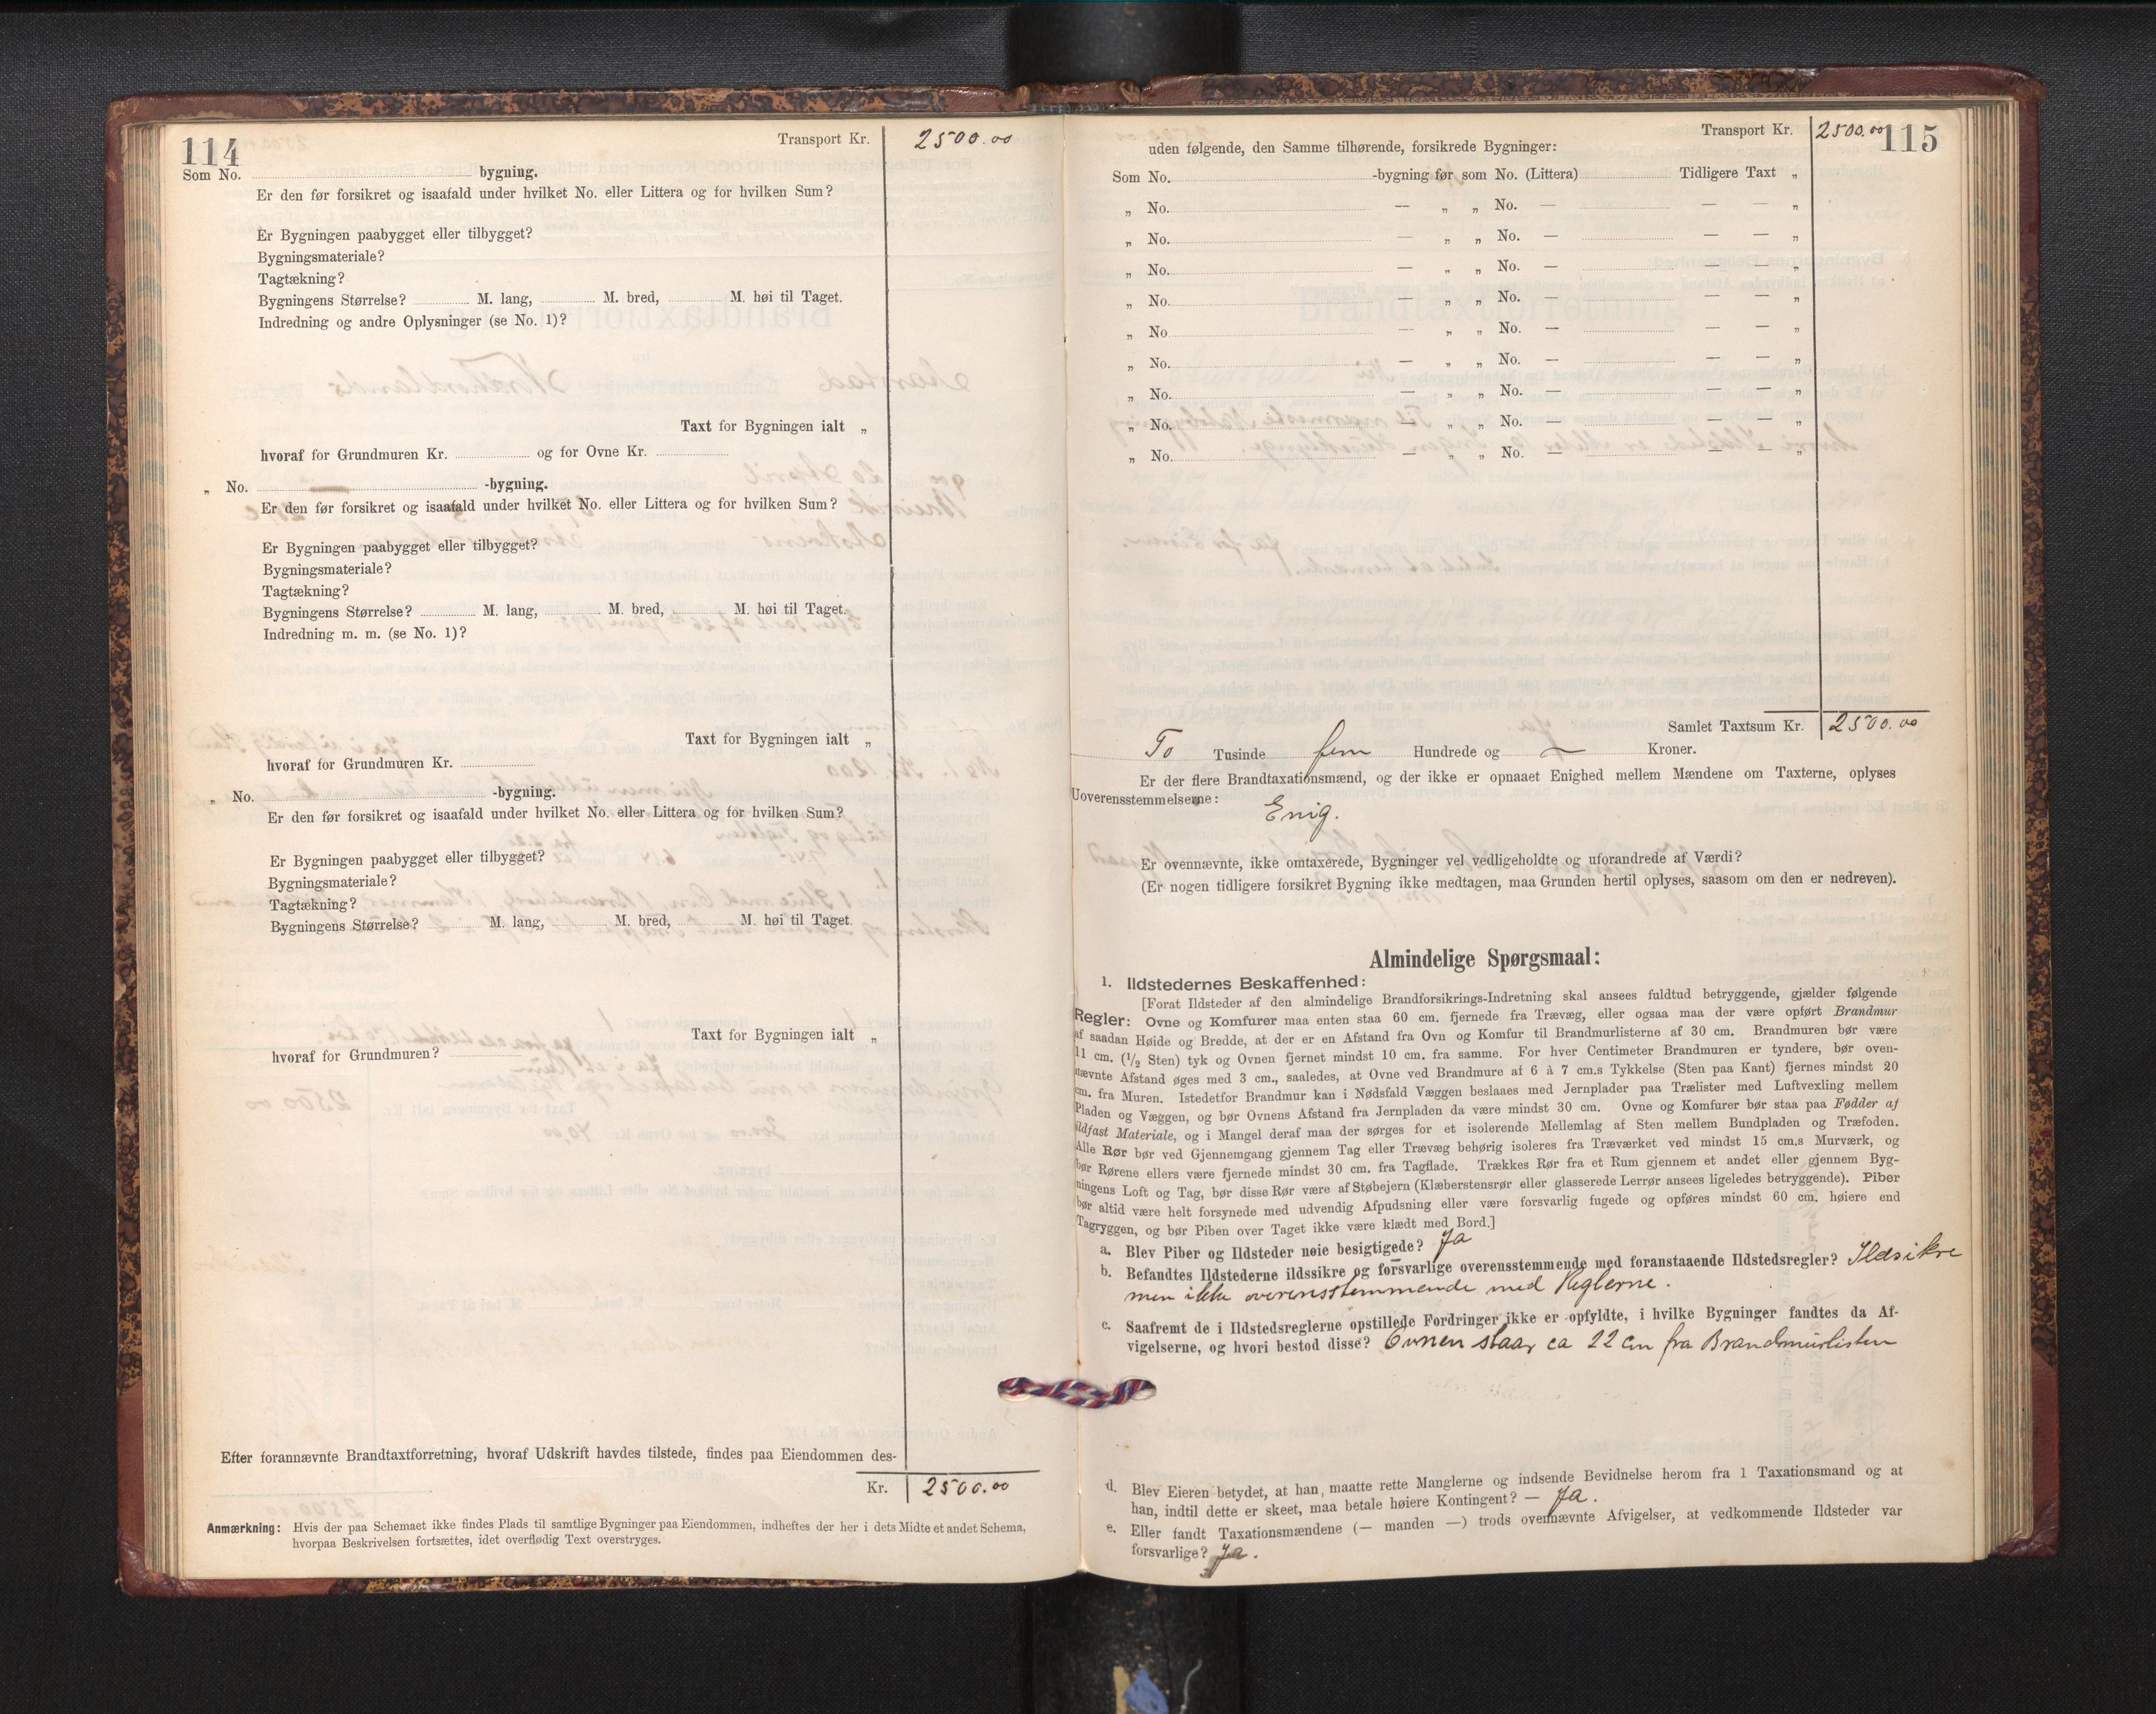 114
Transport Kr. 2500.00
Som No. bygning.
Er den før forsikret og isaafald under hvilket No. eller Littera og for hvilken Sum?
Er Bygningen paabygget eller tilbygget?
Bygningsmateriale?
Tagtækning?
Bygningens Størrelse? M. lang, M. bred, M. høi til Taget.
Indredning og andre Oplysninger (se No. 1)?
Taxt for Bygningen ialt „
hvoraf for Grundmuren Kr. og for Ovne Kr.
„ No. -bygning.
Er den før forsikret og isaafald under hvilket No. eller Littera og for hvilken Sum?
Er Bygningen paabygget eller tilbygget?
Bygningsmateriale?
Tagtækning?
Bygningens Størrelse? M. lang, M. bred, M. høi til Taget.
Indredning m. m. (se No. 1)?
Taxt for Bygningen ialt „
hvoraf for Grundmuren Kr.
„ No. -bygning.
Er den før forsikret og isaafald under hvilket No. eller Littera og for hvilken Sum?
Er Bygningen paabygget eller tilbygget?
Bygningsmateriale?
Tagtækning?
Bygningens Størrelse? M. lang, M. bred, M. høi til Taget.
Taxt for Bygningen ialt „
hvoraf for Grundmuren?
Efter forannævnte Brandtaxtforretning, hvoraf Udskrift havdes tilstede, findes paa Eiendommen des-
Kr. 2500.00
Anmærkning: Hvis der paa Schemaet ikke findes Plads til samtlige Bygninger paa Eiendommen, indheftes der her i dets Midte et andet Schema,
hvorpaa Beskrivelsen fortsættes, idet overflødig Text overstryges.
Transport Kr. 2500.00
115
uden følgende, den Samme tilhørende, forsikrede Bygninger:
Som No. -bygning før som No. (Littera) Tidligere Taxt „
„ No. — „ „ No. — — — „
„ No. — „ „ No. — — — „
„ No. — „ „ No. — — — „
„ No. — „ „ No. — — — „
„ No. — „ „ No. — — — „
„ No. — „ „ No. — — — „
„ No. — „ „ No. — — — „
„ No. — „ „ No. — — — „
„ No. — „ „ No. — — — „
Samlet Taxtsum Kr. 2500.00
To Tusinde fem Hundrede og — Kroner.
Er der flere Brandtaxationsmænd, og der ikke er opnaaet Enighed mellem Mændene om Taxterne, oplyses
Uoverensstemmelserne: Enig.
Er ovennævnte, ikke omtaxerede, Bygninger vel vedligeholdte og uforandrede af Værdi?
(Er nogen tidligere forsikret Bygning ikke medtagen, maa Grunden hertil oplyses, saasom om den er nedreven).
Almindelige Spørgsmaal:
1. Ildstedernes Beskaffenhed:
[Forat Ildsteder af den almindelige Brandforsikrings-Indretning skal ansees fuldtud betryggende, gjælder følgende
Regler: Ovne og Komfurer maa enten staa 60 cm. fjernede fra Trævæg, eller ogsaa maa der være opført Brandmur
af saadan Høide og Bredde, at der er en Afstand fra Ovn og Komfur til Brandmurlisterne af 30 cm. Brandmuren bør være
11 cm. (1/2 Sten) tyk og Ovnen fjernet mindst 10 cm. fra samme. For hver Centimeter Brandmuren er tyndere, bør oven-
nævnte Afstand øges med 3 cm., saaledes, at Ovne ved Brandmure af 6 à 7 cm.s Tykkelse (Sten paa Kant) fjernes mindst 20
cm. fra Muren. Istedetfor Brandmur kan i Nødsfald Væggen beslaaes med Jernplader paa Trælister med Luftvexling mellem
Pladen og Væggen, og bør Ovnens Afstand fra Jernpladen da være mindst 30 cm. Ovne og Komfurer bør staa paa Fødder af
ildfast Materiale, og i Mangel deraf maa der sørges for et isolerende Mellemlag af Sten mellem Bundpladen og Træfoden.
Alle Rør bør ved Gjennemgang gjennem Tag eller Trævæg behørig isoleres fra Træværket ved mindst 15 cm.s Murværk, og
bør Rørene ellers være fjernede mindst 30 cm. fra Tagflade. Trækkes Rør fra et Rum gjennem et andet eller gjennem Byg-
ningens Loft og Tag, bør disse Rør være af Støbejern (Klæberstensrør eller glasserede Lerrør ansees ligeledes betryggende). Piber
bør altid være helt forsynede med udvendig Afpudsning eller være forsvarlig fugede og opføres mindst 60 cm. høiere end
Tagryggen, og bør Piben over Taget ikke være klædt med Bord.]
a. Blev Piber og Ildsteder nøie besigtigede? Ja
b. Befandtes Ildstederne ildssikre og forsvarlige overensstemmende med foranstaaende Ildstedsregler? Ildsikre
men ikke overensstemmende med Reglerne.
c. Saafremt de i Ildstedsreglerne opstillede Fordringer ikke er opfyldte, i hvilke Bygninger fandtes da Af-
vigelserne, og hvori bestod disse? Ovnen staar ca 22 cm fra Brandmurlisten
d. Blev Eieren betydet, at han maatte rette Manglerne og indsende Bevidnelse herom fra 1 Taxationsmand og at
han, indtil dette er skeet, maa betale høiere Kontingent? — Ja.
e. Eller fandt Taxationsmændene (— manden —) trods ovennævnte Afvigelser, at vedkommende Ildsteder var
forsvarlige? Ja.